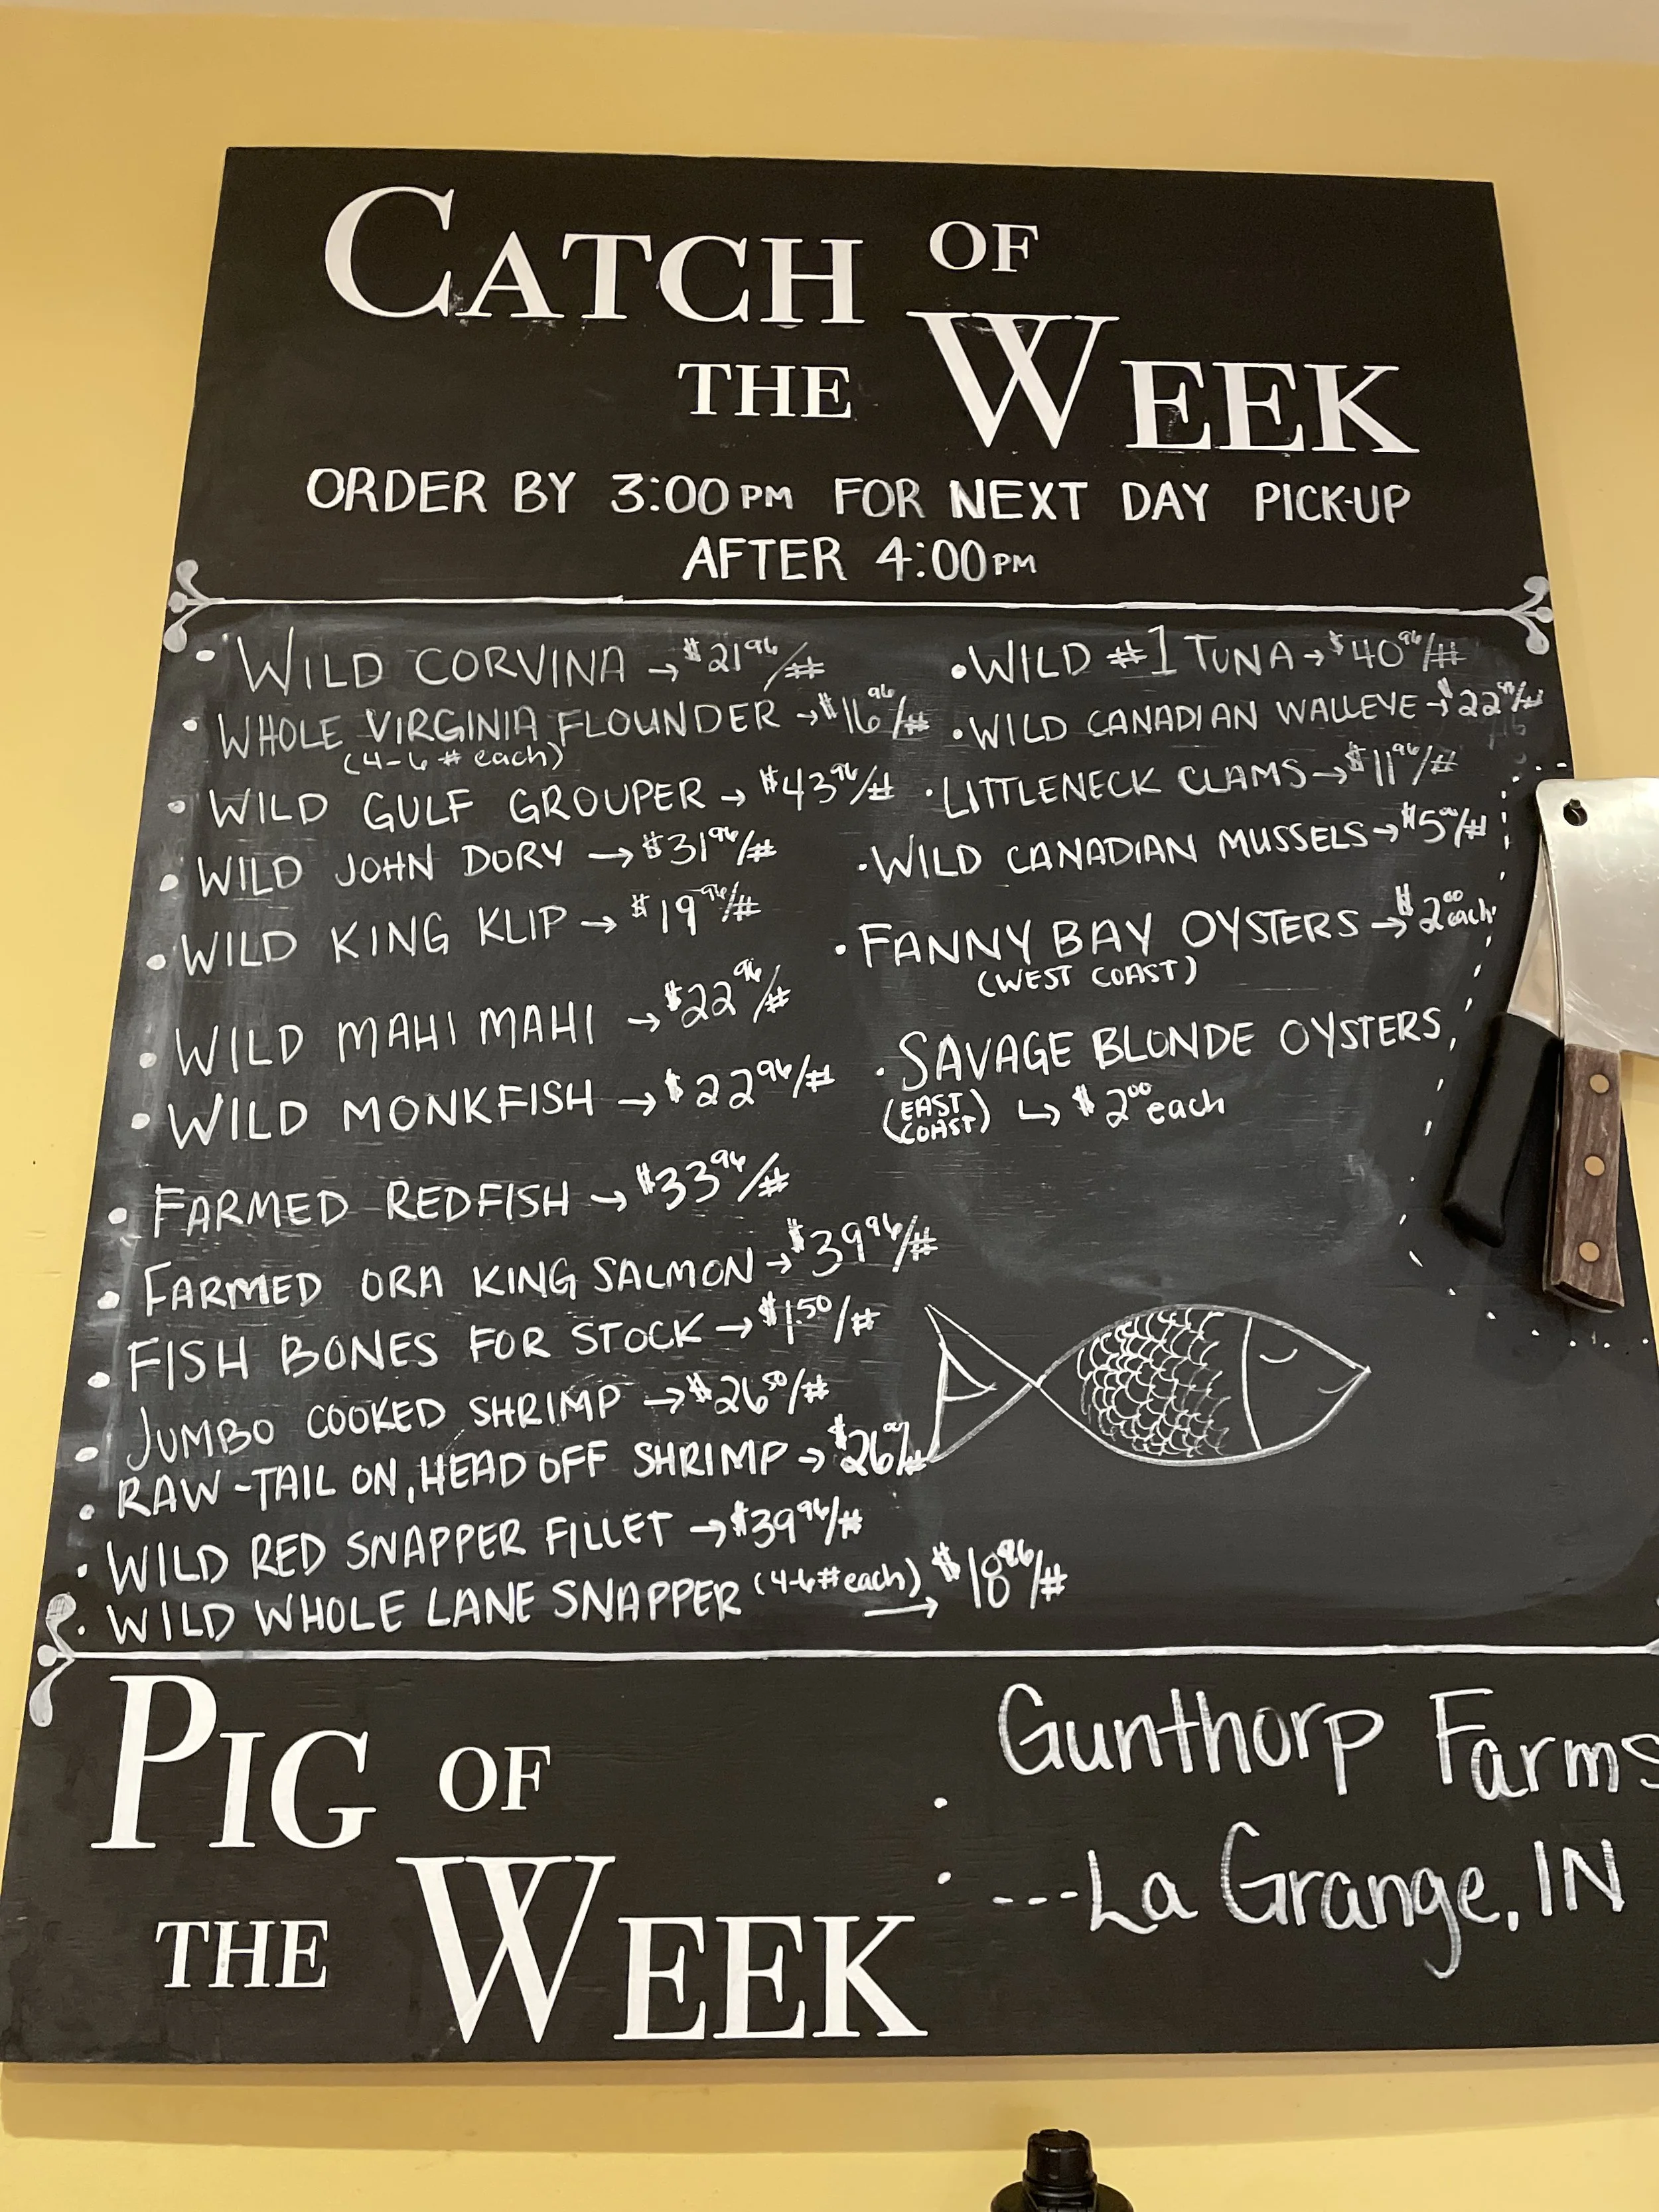 CATCH OF
THE WEEK
ORDER BY 3:00PM FOR NEXT DAY PICK-UP
AFTER 4:00PM
• WILD CORVINA → $21.96/#
• WHOLE VIRGINIA FLOUNDER → $16.96/#
(4-6 # each)
• WILD GULF GROUPER → $43.96/#
• WILD JOHN DORY → $31.96/#
• WILD KING KLIP → $19.96/#
• WILD MAHI MAHI → $22.96/#
• WILD MONKFISH → $22.96/#
• FARMED REDFISH → $33.96/#
• FARMED ORA KING SALMON → $39.96/#
• FISH BONES FOR STOCK → $1.50/#
• JUMBO COOKED SHRIMP → $26.50/#
• RAW-TAIL ON, HEAD OFF SHRIMP → $26
• WILD RED SNAPPER FILLET → $39.96/#
• WILD WHOLE LANE SNAPPER (4-6# each) → $18.96/#
• WILD #1 TUNA → $40.96/#
• WILD CANADIAN WALLEYE → $22
• LITTLENECK CLAMS → $11.96/#
• WILD CANADIAN MUSSELS → $5.00/#
• FANNY BAY OYSTERS → $2.00 each
(WEST COAST)
• SAVAGE BLONDE OYSTERS
(EAST COAST) ↳ $2.00 each
PIG OF
THE WEEK
• Gunthorp Farms
• ---La Grange, IN